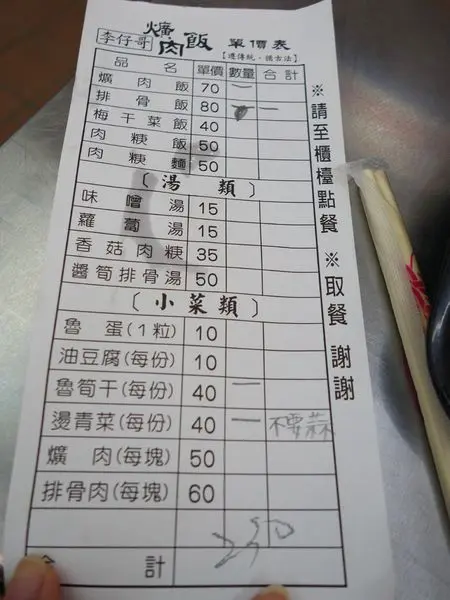 李仔哥 爌肉飯 單價表
【遵傳統·循古法】
品名 單價 數量 合計
爌肉飯 70 一
排骨飯 80 一
梅干菜飯 40
肉粳飯 50
肉粳麵 50
〔湯類〕
味噌湯 15
蘿蔔湯 15
香菇肉粳 35
醬筍排骨湯 50
〔小菜類〕
魯蛋(1粒) 10
油豆腐(每份) 10
魯筍干(每份) 40 一
燙青菜(每份) 40 一 不要蒜
爌肉(每塊) 50
排骨肉(每塊) 60
合計 230
※請至櫃檯點餐 ※取餐 謝謝